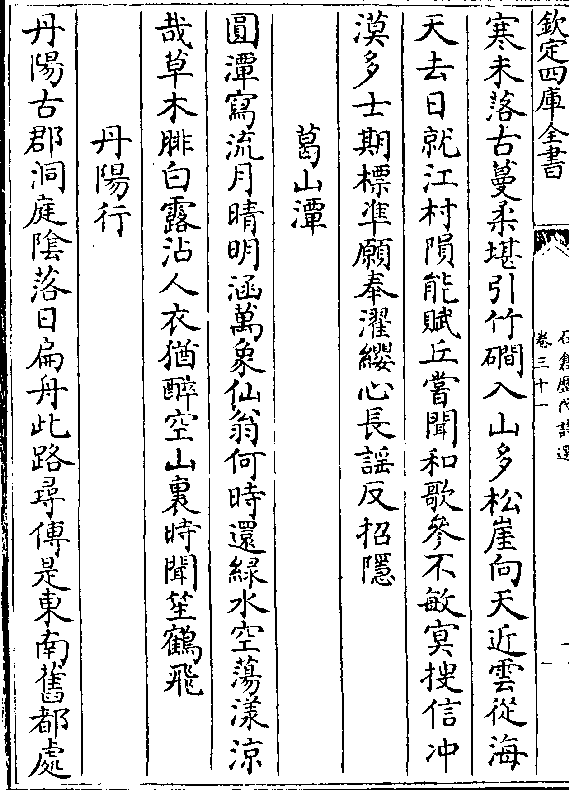 欽定四庫全書
卷三十一
寒未落古蔓柔堪引竹磵入山多松崖向天近雲從海
天去日就江村隕能賦丘嘗聞和歌參不敏㝠搜信冲
漠多士期標準願奉濯纓心長謡反招隱
葛山潭
圓潭寫流月晴明涵萬象仙翁何時還緑水空蕩漾涼
哉草木腓白露沾人衣猶醉空山裏時聞笙鶴飛
丹陽行
丹陽古郡洞庭隂落日扁舟此路尋傳是東南舊都處